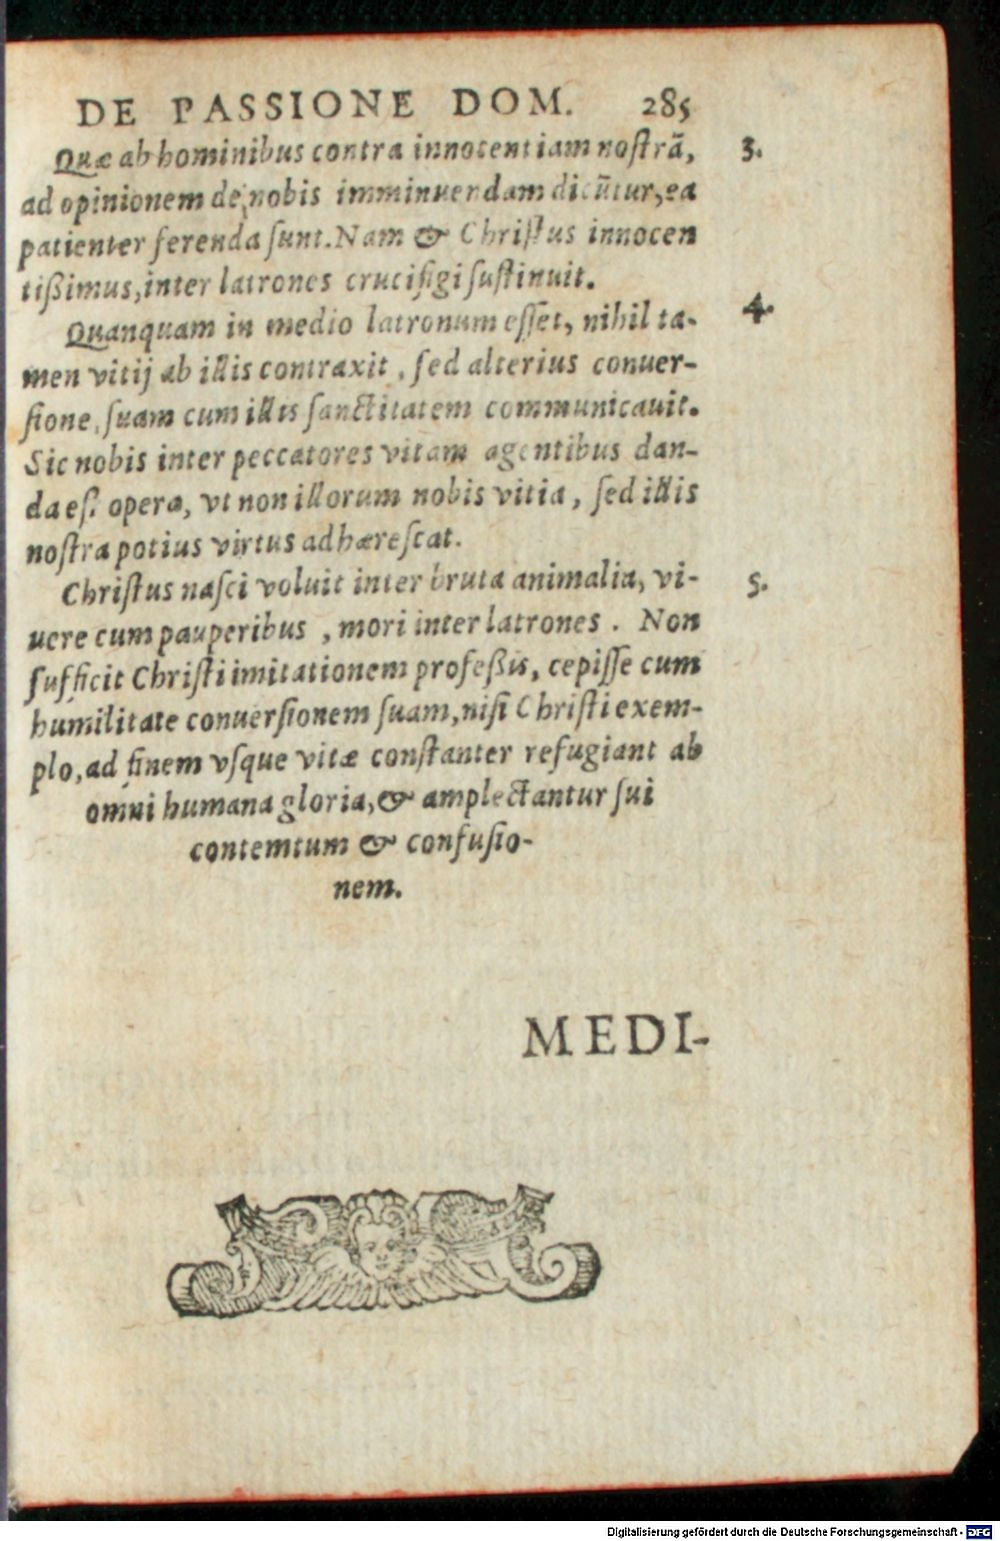 DE PASSIONE DOM. 285
Quæ ab hominibus contra innocentiam nostrā, 3.
ad opinionem de nobis imminuendam dicūtur, ea
patienter ferenda sunt. Nam & Christus innocen
tißimus, inter latrones crucifigi sustinuit.
Quanquam in medio latronum esset, nihil ta- 4.
men vitij ab illis contraxit, sed alterius conuer-
sione, suam cum illis sanctitatem communicauit.
Sic nobis inter peccatores vitam agentibus dan-
da est opera, vt non illorum nobis vitia, sed illis
nostra potius virtus adhærescat.
Christus nasci voluit inter bruta animalia, vi- 5.
uere cum pauperibus, mori inter latrones. Non
sufficit Christi imitationem profeßis, cepisse cum
humilitate conuersionem suam, nisi Christi exem-
plo, ad finem vsque vitæ constanter refugiant ab
omni humana gloria, & amplectantur sui
contemtum & confusio-
nem.
MEDI-
Digitalisierung gefördert durch die Deutsche Forschungsgemeinschaft - DFG